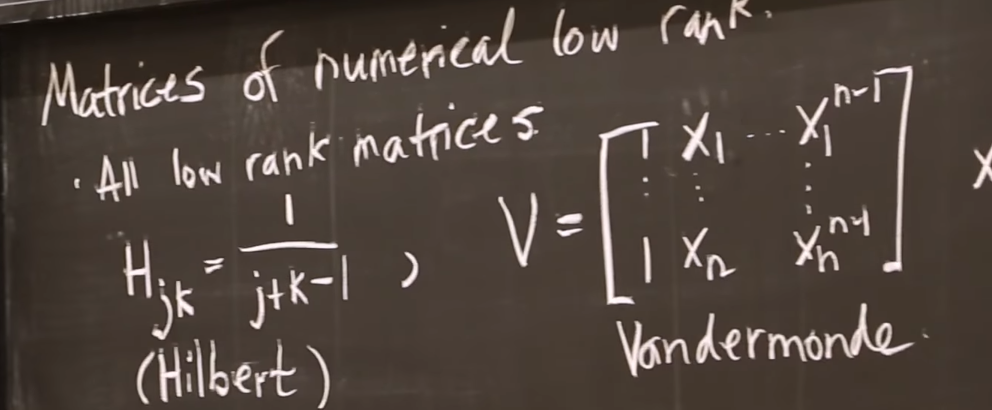 Matrices of numerical low rank.
· All low rank matrices
H_{jk} = \frac{1}{j+k-1} , V = \begin{bmatrix} 1 & x_1 & \cdots & x_1^{n-1} \\ \vdots & \vdots & & \vdots \\ 1 & x_n & & x_n^{n-1} \end{bmatrix} x
(Hilbert) Vandermonde.